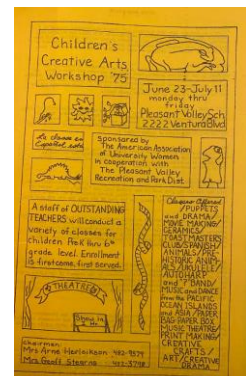 Children's
Creative Arts
Workshop '75
June 23-July 11
monday thru
friday
Pleasant Valley Sch
2222 Ventura Blvd
Sponsored by
The American Association
of University Women
in cooperation with
The Pleasant Valley
Recreation and Park Dist.
A staff of OUTSTANDING
TEACHERS will conduct a
variety of classes for
children Pre K thru 6th
grade level. Enrollment
is first come, first served.
THEATRE
Show in
Classes Offered
PUPPETS
and DRAMA/
MOVIE MAKING/
CERAMICS/
TOAST MASTERS
CLUB/SPANISH/
ANIMALS/PRE-
HISTORIC ANIM-
ALS/UKULELE/
AUTOHARP
and BAND/
MUSIC and DANCE
from the PACIFIC
OCEAN ISLANDS
and ASIA/PAPER
BAG PAPER BOX
MUSIC THEATRE/
PRINT MAKING/
CREATIVE
CRAFTS/
ART/CREATIVE
DRAMA
chairmen:
Mrs Arne
Mrs Geoff Stearns